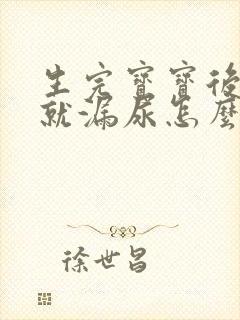 生完寶寶後
就漏尿怎麼
徐世昌